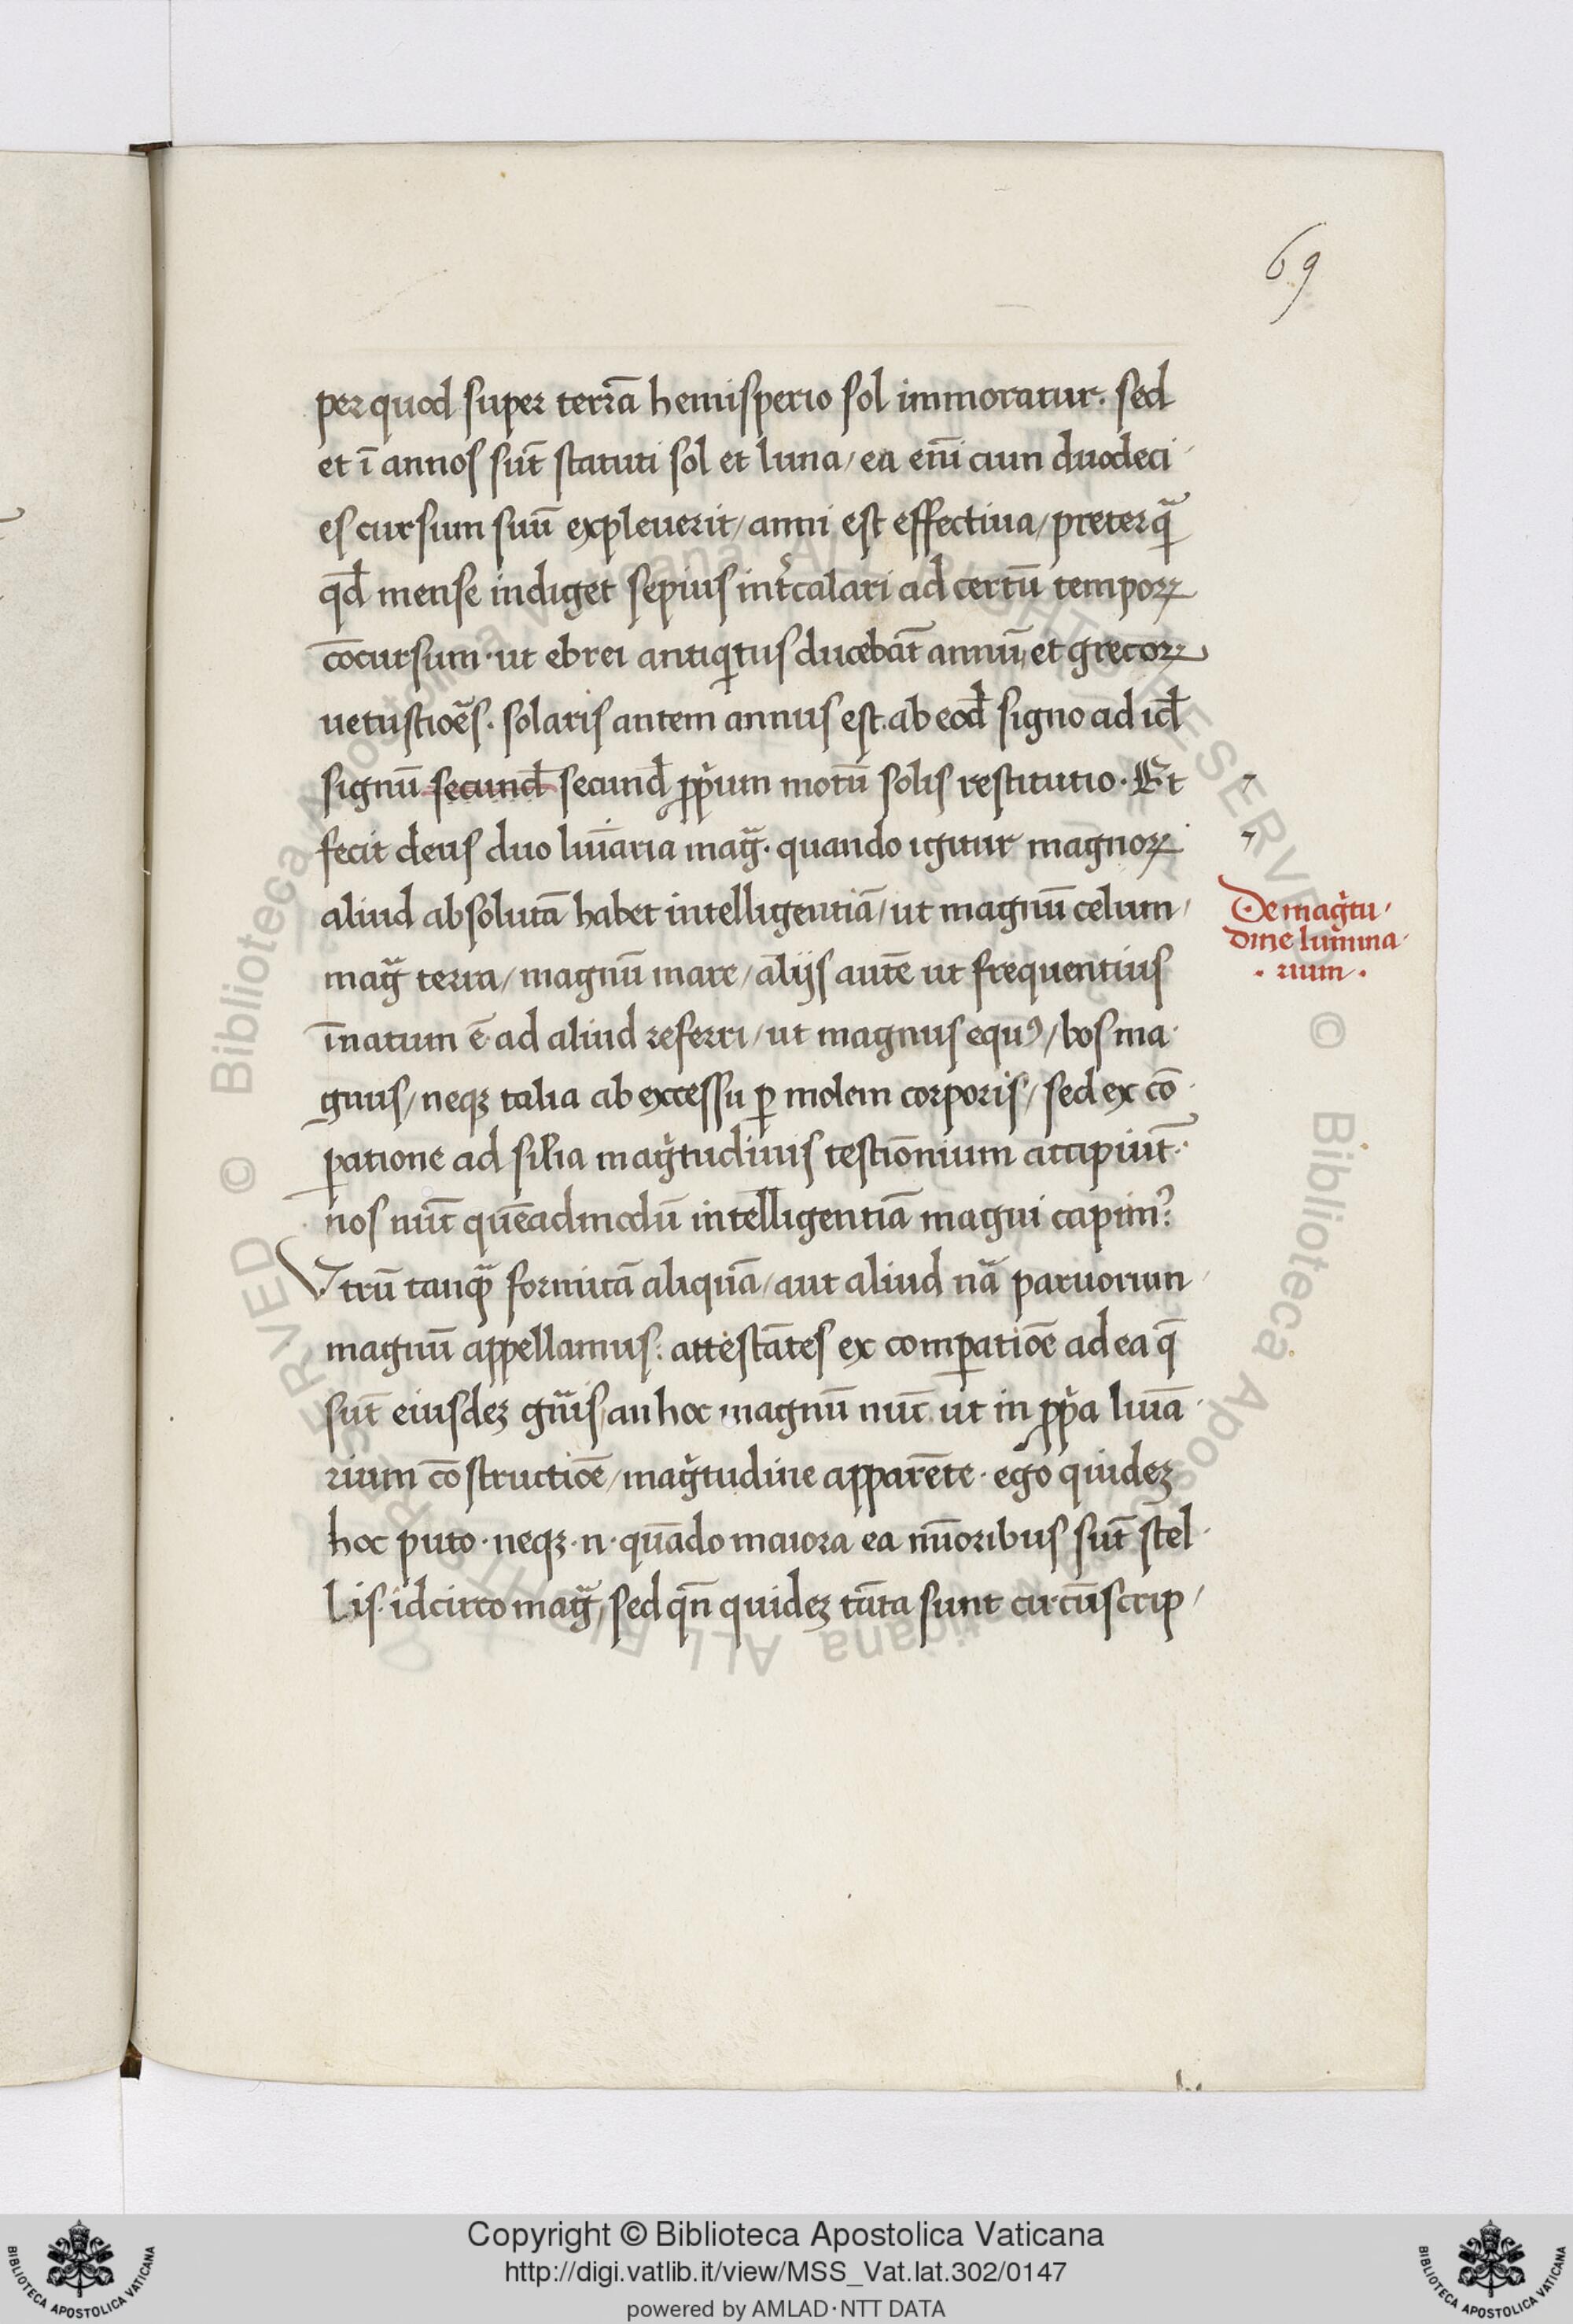 69
per quod super terrā hemisperio sol immoratur. sed
et ī annos sūt statuti sol et luna/ ea enī cum duodeci
es cursum suū expleuerit/ anni est effectiua/ preterqᷓ
qđ mense indiget sepius intᷣcalari ad certū temporꝝ
cōcursum· ut ebrei antiqͥtus ducebāt annū/ et grecorꝝ
uetustioēs. solaris autem annus est. ab eođ signo ad iđ
signū secunđ secunđ ꝓpͥum motū solis restitutio. Et
fecit deus duo luīaria magᷓ. quando igitur magnorꝝ
aliud absolutā habet intelligentiā/ ut magnū celum/
magᷓ terra/ magnū mare/ aliĳs autē ut frequentius
īnatum ē ad aliud referri/ ut magnus equꝰ/ bos ma
gnus/ neqꝫ talia ab excessu ꝑ molem corporis/ sed ex cō
ꝑatione ad sil̄ia magͥtudinis testiōnium accipiūt·
nos nūc quēadmodū intelligentiā magni capimꝰ?
Vtrū tanqᷓ formicā aliquā/ aut aliud nā paruorum
magnū appellamus: attestātes ex comꝑatiōe ad ea q̄
sūt eiusdeꝫ gn̄is/ an hoc magnū nūc ut in ꝓpͥa luīa
rium cōstructiōe/ magͥtudine apparēte· ego quideꝫ
hoc puto· neqꝫ ·n· quādo maiora ea mīoribus sūt stel
lis· idcirco magᷓ/ sed qn̄ quideꝫ tāta sunt circūscrip/
De magͥtu/
dine lumina
· rium ·
Copyright © Biblioteca Apostolica Vaticana
http://digi.vatlib.it/view/MSS_Vat.lat.302/0147
powered by AMLAD·NTT DATA
BIBLIOTECA APOSTOLICA VATICANA
BIBLIOTECA APOSTOLICA VATICANA